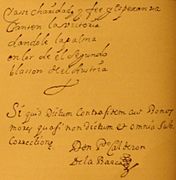 Clavi charidad y fee y esperanza
Canten la victoria
dandole la palma
en los de el segundo
blasson de el Austria
Si quid Dictum Contra fidem aut Bonos
mores quasi non dictum et omnia sub
Correctione
Don Po Calderon
De la Barca